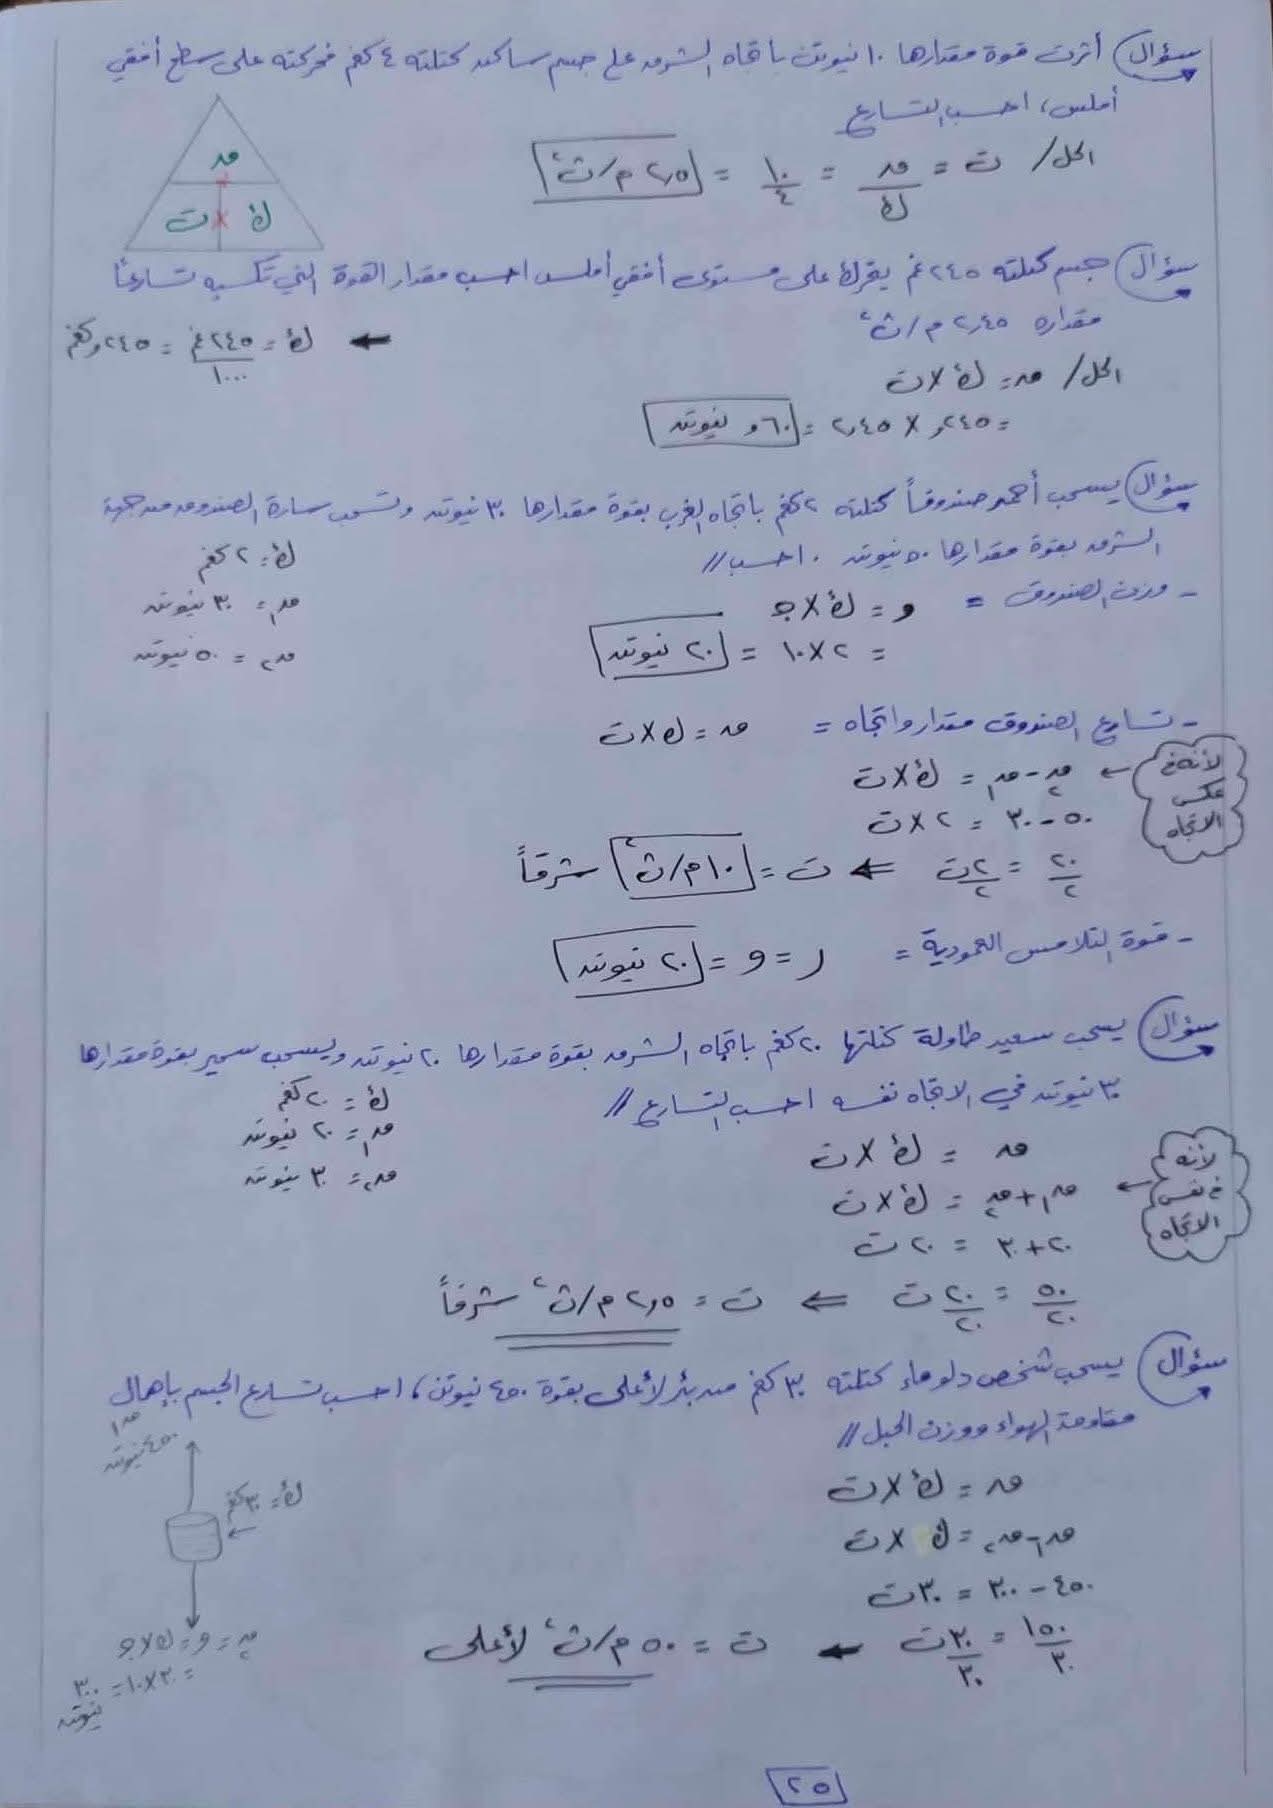 سؤال) أثرت قوة مقدارها ١٠ نيوتن باتجاه الشرق على جسم ساكن كتلته ٤ كغم فحركته على سطح أفقي
أملس، احسب التسارع
الحل/ ت = ق/ك = ١٠/٤ = ٢,٥ م/ث٢
ق
ك × ت
سؤال) جسم كتلته ٢٤٥ غم يتحرك على مستوى أفقي أملس احسب مقدار القوة التي تكسبه تسارعاً
مقداره ٢,٤٥ م/ث٢
ك = ٢٤٥ غم/١٠٠٠ = ٢٤٥, كغم
الحل/ ق = ك × ت
= ٢٤٥, × ٢,٤٥ = ٦٠, نيوتن
سؤال) يسحب أحمد صندوقاً كتلته ٢ كغم باتجاه الغرب بقوة مقدارها ٣٠ نيوتن وتسحب سارة الصندوق من جهة
الشرق بقوة مقدارها ٥٠ نيوتن . احسب //
ك = ٢ كغم
ق١ = ٣٠ نيوتن
ق٢ = ٥٠ نيوتن
- وزن الصندوق = و = ك × جـ
= ٢ × ١٠ = ٢٠ نيوتن
- تسارع الصندوق مقدار واتجاه = ق = ك × ت
ق٢ - ق١ = ك × ت
لأنه في
عكس
الاتجاه
٥٠ - ٣٠ = ٢ × ت
٢٠/٢ = ٢ت/٢ ⇐ ت = ١٠ م/ث٢ شرقاً
- قوة التلامس العمودية = ر = و = ٢٠ نيوتن
سؤال) يسحب سعيد طاولة كتلتها ٢٠ كغم باتجاه الشرق بقوة مقدارها ٢٠ نيوتن ويسحب سمير بقوة مقدارها
٣٠ نيوتن في الاتجاه نفسه احسب التسارع //
ك = ٢٠ كغم
ق١ = ٢٠ نيوتن
ق٢ = ٣٠ نيوتن
ق = ك × ت
ق١ + ق٢ = ك × ت
لأنه
في نفس
الاتجاه
٢٠ + ٣٠ = ٢٠ ت
٥٠/٢٠ = ٢٠ت/٢٠ ⇐ ت = ٢,٥ م/ث٢ شرقاً
سؤال) يسحب شخص دلو ماء كتلته ٣٠ كغم من بئر لأعلى بقوة ٤٥٠ نيوتن، احسب تسارع الجسم بإهمال
مقاومة الهواء ووزن الحبل //
ق١
٤٥٠ نيوتن
ك = ٣٠ كغم
ق٢ = و = ك × جـ
= ٣٠ × ١٠ = ٣٠٠
نيوتن
ق = ك × ت
ق١ - ق٢ = ك × ت
٤٥٠ - ٣٠٠ = ٣٠ ت
١٥٠/٣٠ = ٣٠ت/٣٠ ← ت = ٥٠ م/ث٢ لأعلى
٢٥